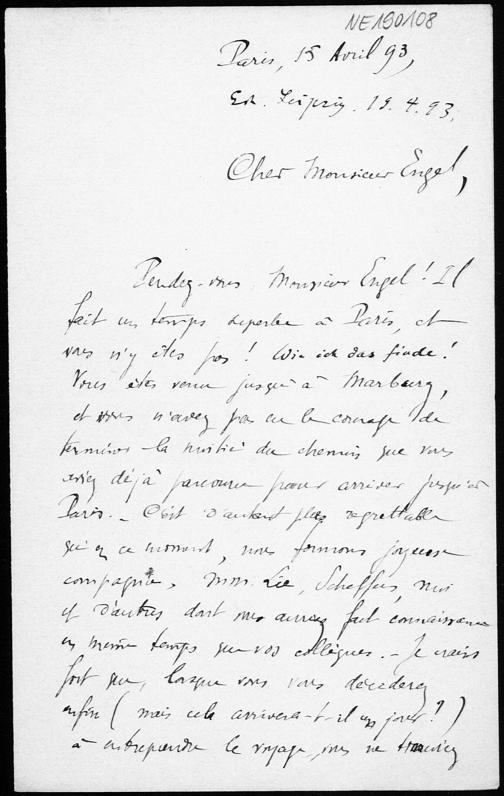 NE190108
Paris, 15 Avril 93,
Leipzig. 19.4.93.
Cher Monsieur Engel,
Pendez-vous Monsieur Engel! Il
fait un temps superbe à Paris, et
vous n'y êtes pas! Wie ich das finde!
Vous êtes venu jusqu'à Marburg,
et vous n'avez pas eu le courage de
terminer la moitié du chemin que vous
aviez déjà parcouru pour arriver jusqu'à
Paris. – C'est d'autant plus regrettable
qu'en ce moment, nous formons joyeuse
compagnie, MM. Lie, Scheffers, moi
et d'autres dont vous auriez fait connaissance
en même temps que vos collègues. – Je crains
fort que, lorsque vous vous déciderez
enfin (mais cela arrivera-t-il un jour?)
à entreprendre le voyage, vous ne trouviez